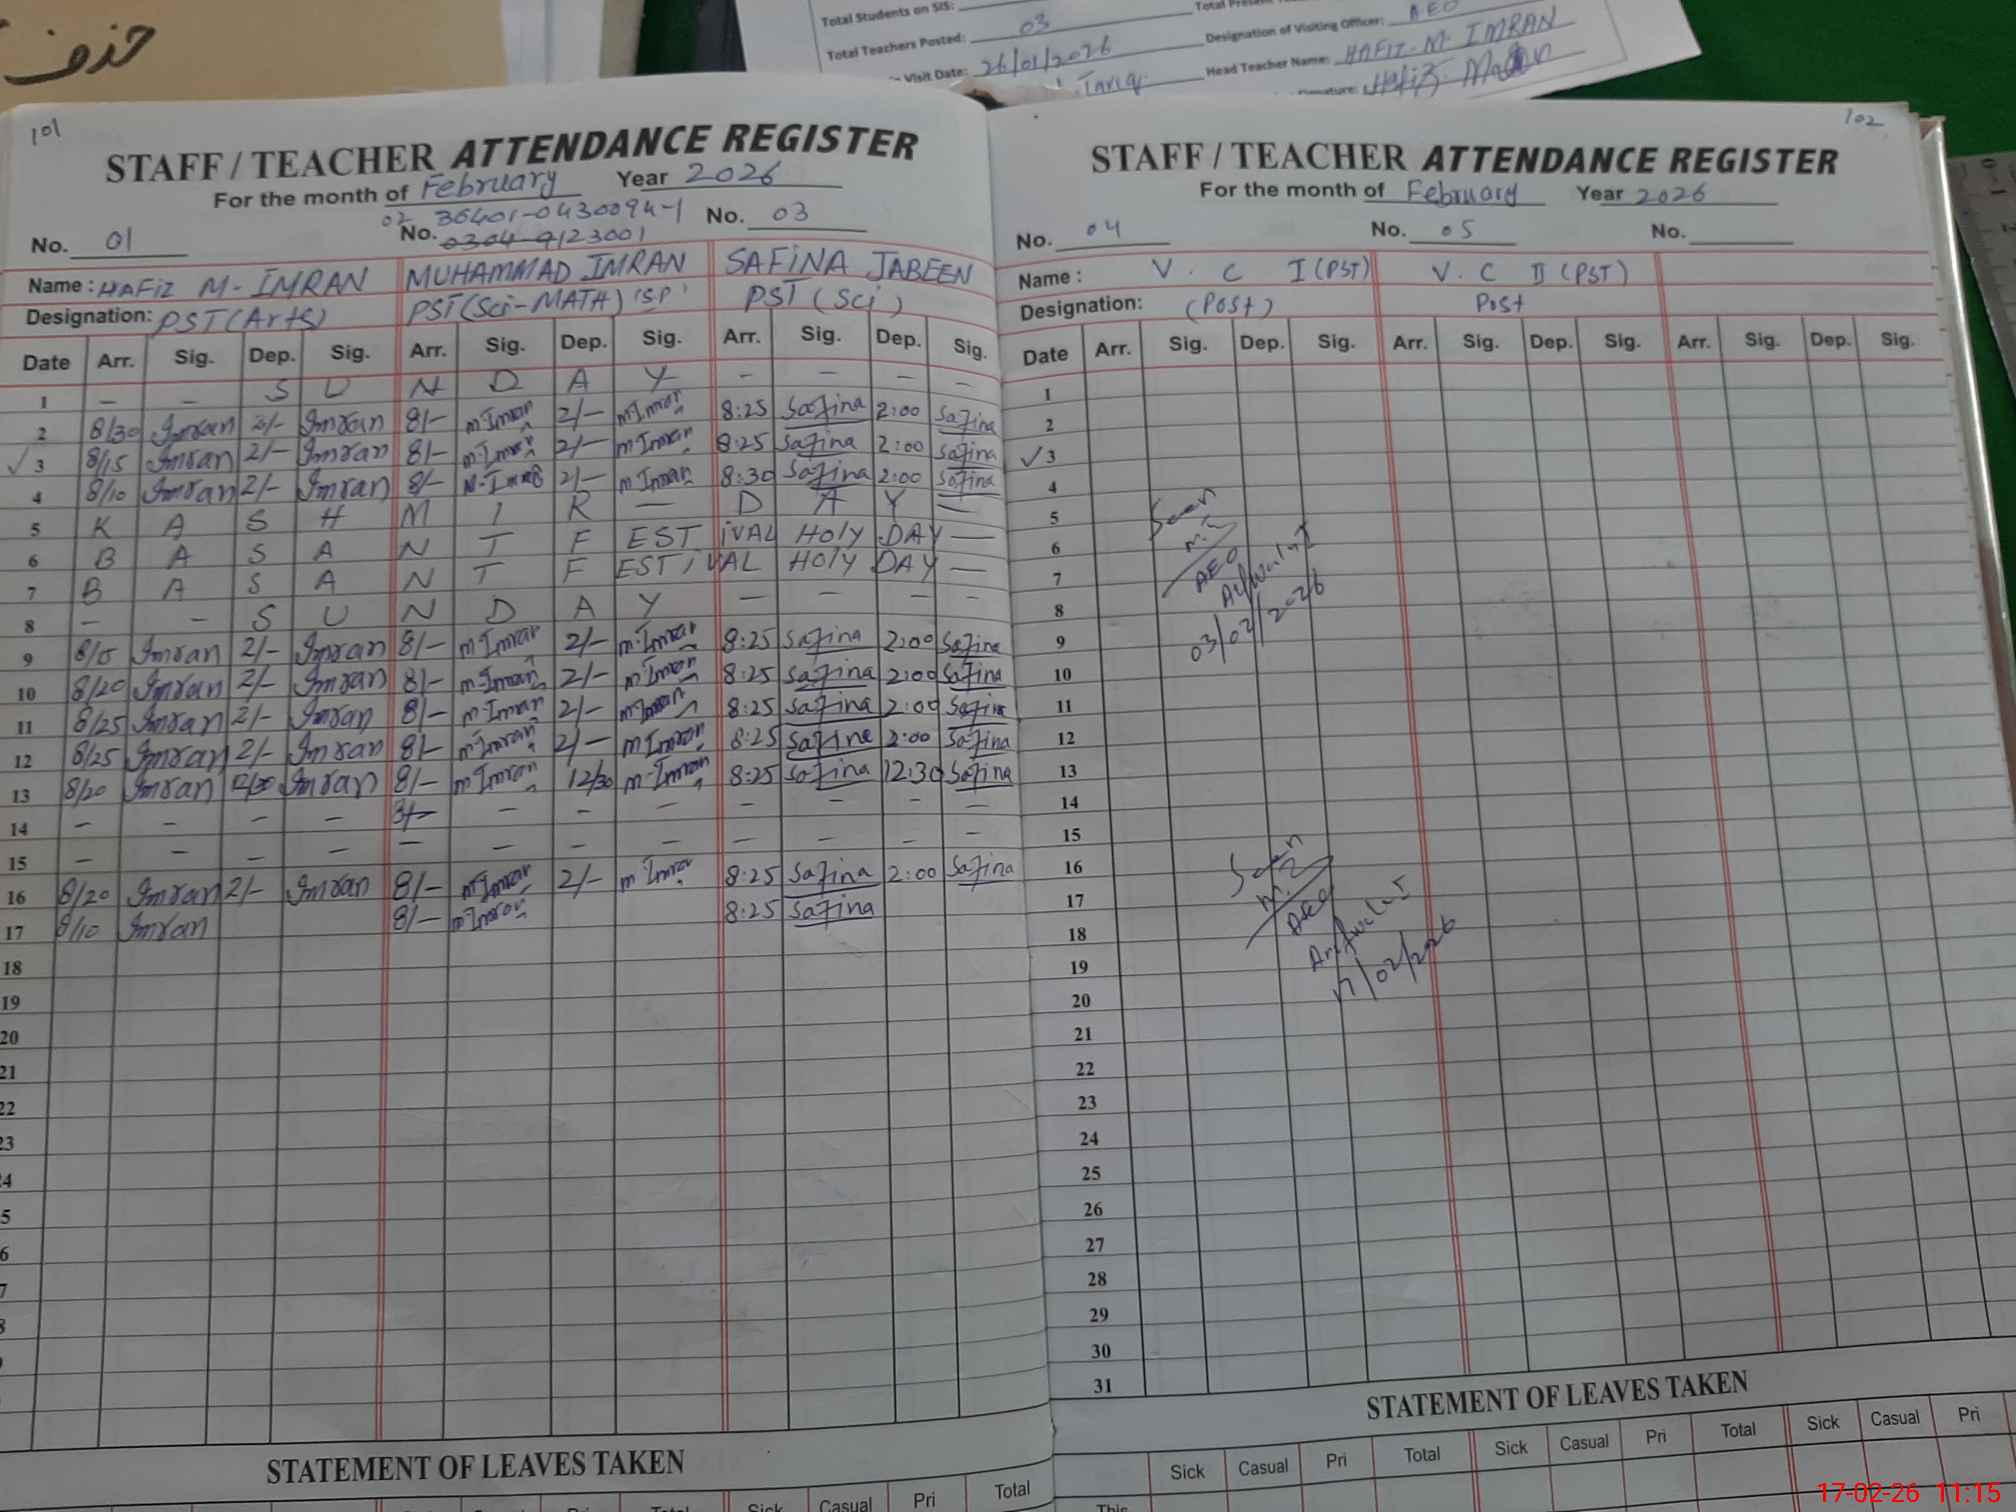 حذف
Total Students on SIS:
Total Teachers Posted: 03
Designation of Visiting Officer: AEO
Visit Date: 26/01/2026
Head Teacher Name: HAFIZ M. IMRAN
Tariq
Hafiz
101
STAFF / TEACHER ATTENDANCE REGISTER
For the month of February Year 2026
No. 01
02 36401-0430094-1
No. 0304-9123001
No. 03
Name: HAFIZ M. IMRAN MUHAMMAD IMRAN SAFINA JABEEN
Designation: PST (Arts) PST (Sci-MATH) PST (Sci)
Date Arr. Sig. Dep. Sig. Arr. Sig. Dep. Sig. Arr. Sig. Dep. Sig.
1 — — S U N D A Y — — — —
2 8/30 Imran 2/- Imran 8/- m.Imran 2/- m.Imran 8:25 Safina 2:00 Safina
✓ 3 8/15 Imran 2/- Imran 8/- m.Imran 2/- m.Imran 8:25 Safina 2:00 Safina
4 8/10 Imran 2/- Imran 8/- 2/- m.Imran 8:30 Safina 2:00 Safina
5 K A S H M I R — D A Y —
6 B A S A N T F EST IVAL HOLY DAY —
7 B A S A N T F ESTIVAL HOLY DAY —
8 — — S U N D A Y — — — —
9 8/15 Imran 2/- Imran 8/- m.Imran 2/- m.Imran 8:25 Safina 2:00 Safina
10 8/20 Imran 2/- Imran 8/- m.Imran 2/- m.Imran 8:25 Safina 2:00 Safina
11 8/25 Imran 2/- Imran 8/- m.Imran 2/- m.Imran 8:25 Safina 2:00 Safina
12 8/25 Imran 2/- Imran 8/- m.Imran 2/- m.Imran 8:25 Safina 2:00 Safina
13 8/20 Imran 12/30 Imran 8/- m.Imran 12/30 m.Imran 8:25 Safina 12:30 Safina
14 — — — — — — — — — — —
15 — — — — — — — — — — — —
16 8/20 Imran 2/- Imran 8/- m.Imran 2/- m.Imran 8:25 Safina 2:00 Safina
17 8/10 Imran 8/- m.Imran 8:25 Safina
18
19
20
21
22
23
24
5
6
7
8
STATEMENT OF LEAVES TAKEN
Total Sick Casual Pri Total
102
STAFF / TEACHER ATTENDANCE REGISTER
For the month of February Year 2026
No. 04 No. 05 No.
Name: V. C I (PST) V. C II (PST)
Designation: (Post) Post
Date Arr. Sig. Dep. Sig. Arr. Sig. Dep. Sig. Arr. Sig. Dep. Sig.
1
2
✓ 3
4
5
6
7
8
9
10
11
12
13
14
15
16
17
18
19
20
21
22
23
24
25
26
27
28
29
30
31
Seen
AEO
03/02/2026
Seen
AEO
17/02/2026
STATEMENT OF LEAVES TAKEN
Sick Casual Pri Total Sick Casual Pri Total Sick Casual Pri
This
17-02-26 11:15